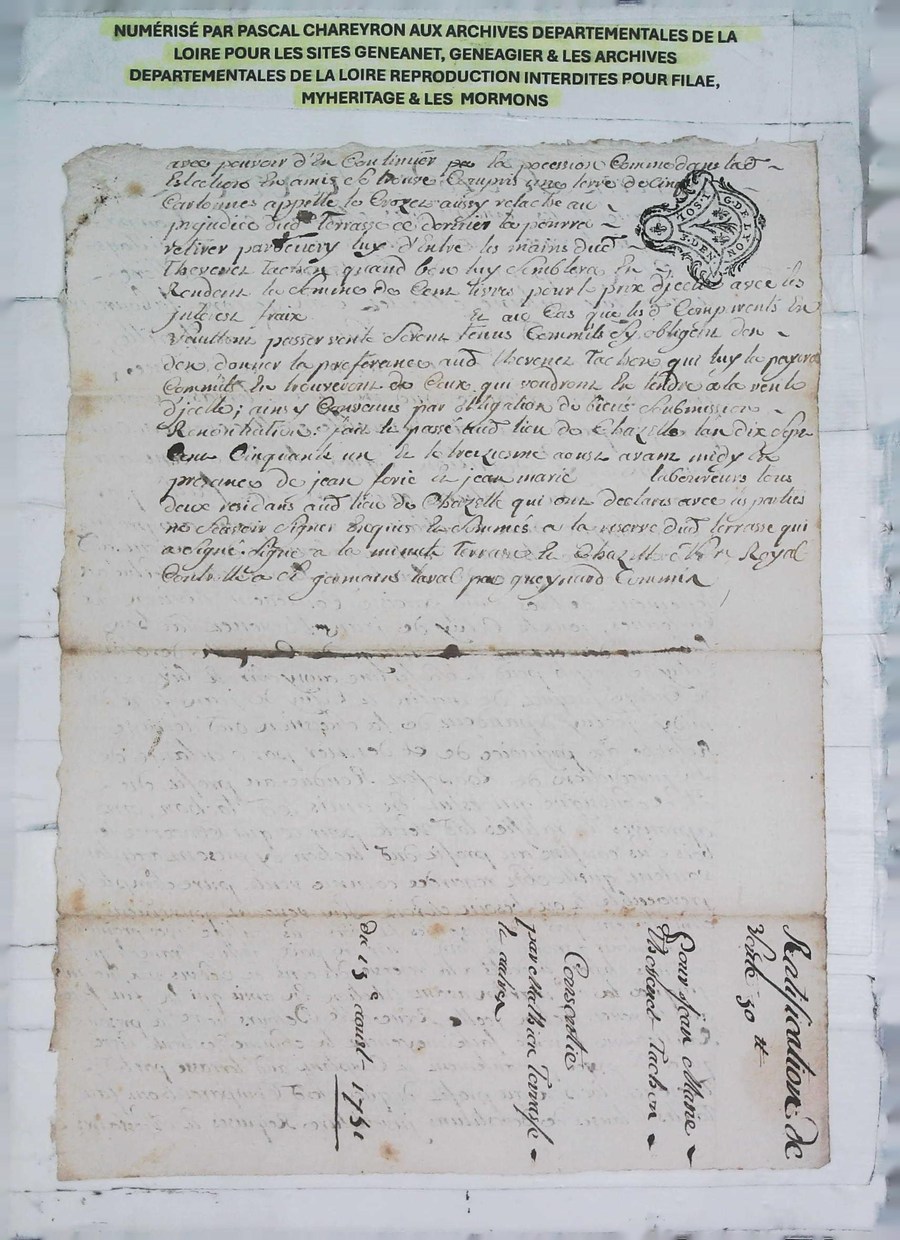 NUMÉRISÉ PAR PASCAL CHAREYRON AUX ARCHIVES DEPARTEMENTALES DE LA
LOIRE POUR LES SITES GENEANET, GENEAGIER & LES ARCHIVES
DEPARTEMENTALES DE LA LOIRE REPRODUCTION INTERDITES POUR FILAE,
MYHERITAGE & LES MORMONS
avec pouvoir d'En Continuer la pocession Comme dans lad
En amis Compris une terre de cinq
Cartonnes appellé le Crozet aussy relaché au
prejudice dud terrasse ce dernier le pourra
retirer par luy d'entre les mains dud
thevenet tachon quand bon luy semblera En
Rendent la somme de Cent livres pour le prix d'jcelle avec les
fraix Et au Cas que les d Comparents En
passer vente seront tenus Comm'ils s'y obligent den
den donner la preferance aud thevenet tachon qui luy la payera
Comm'ils En trouveront de Ceux qui voudront Entendre a la vente
d'jcelle; ainsy Convenus par obligation de biens submission
Renontiation: fait et passé aud lieu de Chazelle lan dix sept
Cent Cinquante un et le treizieme aoust avant midy En
presance de jean et jean marie laboureurs tous
deux residans aud lieu de Chazelle qui ont declaré avec les parties
ne scavoir signer Enquis et sommés a la reserve dud terrasse qui
a signé. signé a la minute terrasse et Chazelle Royal
Controllé a St germain laval par queynard Commis
G. DE LYON
Ratification de
Vente 50 ₶
Pour Jean Marie
Thevenet Tachon
Consentie
par Mathieu Terrasse
& autres
du 13e aoust 1751